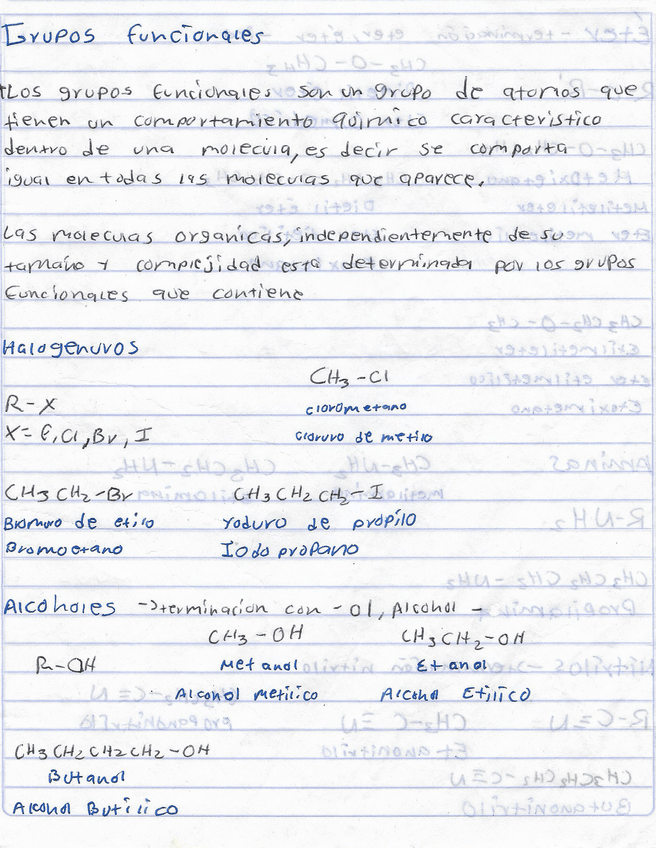 Grupos funcionales
Los grupos funcionales son un grupo de atomos que
tienen un comportamiento químico caracteristico
dentro de una molecula, es decir se comporta
igual en todas las moleculas que aparece.
Las moleculas organicas, independientemente de su
tamaño y complejidad esta determinada por los grupos
funcionales que contiene
Halogenuros
CH3-Cl
R-X clorometano
X= F, Cl, Br, I cloruro de metilo
CH3CH2-Br CH3CH2CH2-I
Bromuro de etilo Yoduro de propilo
Bromoetano Iodo propano
Alcoholes ->terminacion con -ol, Alcohol -
CH3-OH CH3CH2-OH
R-OH Metanol Etanol
Alcohol metilico Alcohol Etilico
CH3CH2CH2CH2-OH
Butanol
Alcohol Butilico